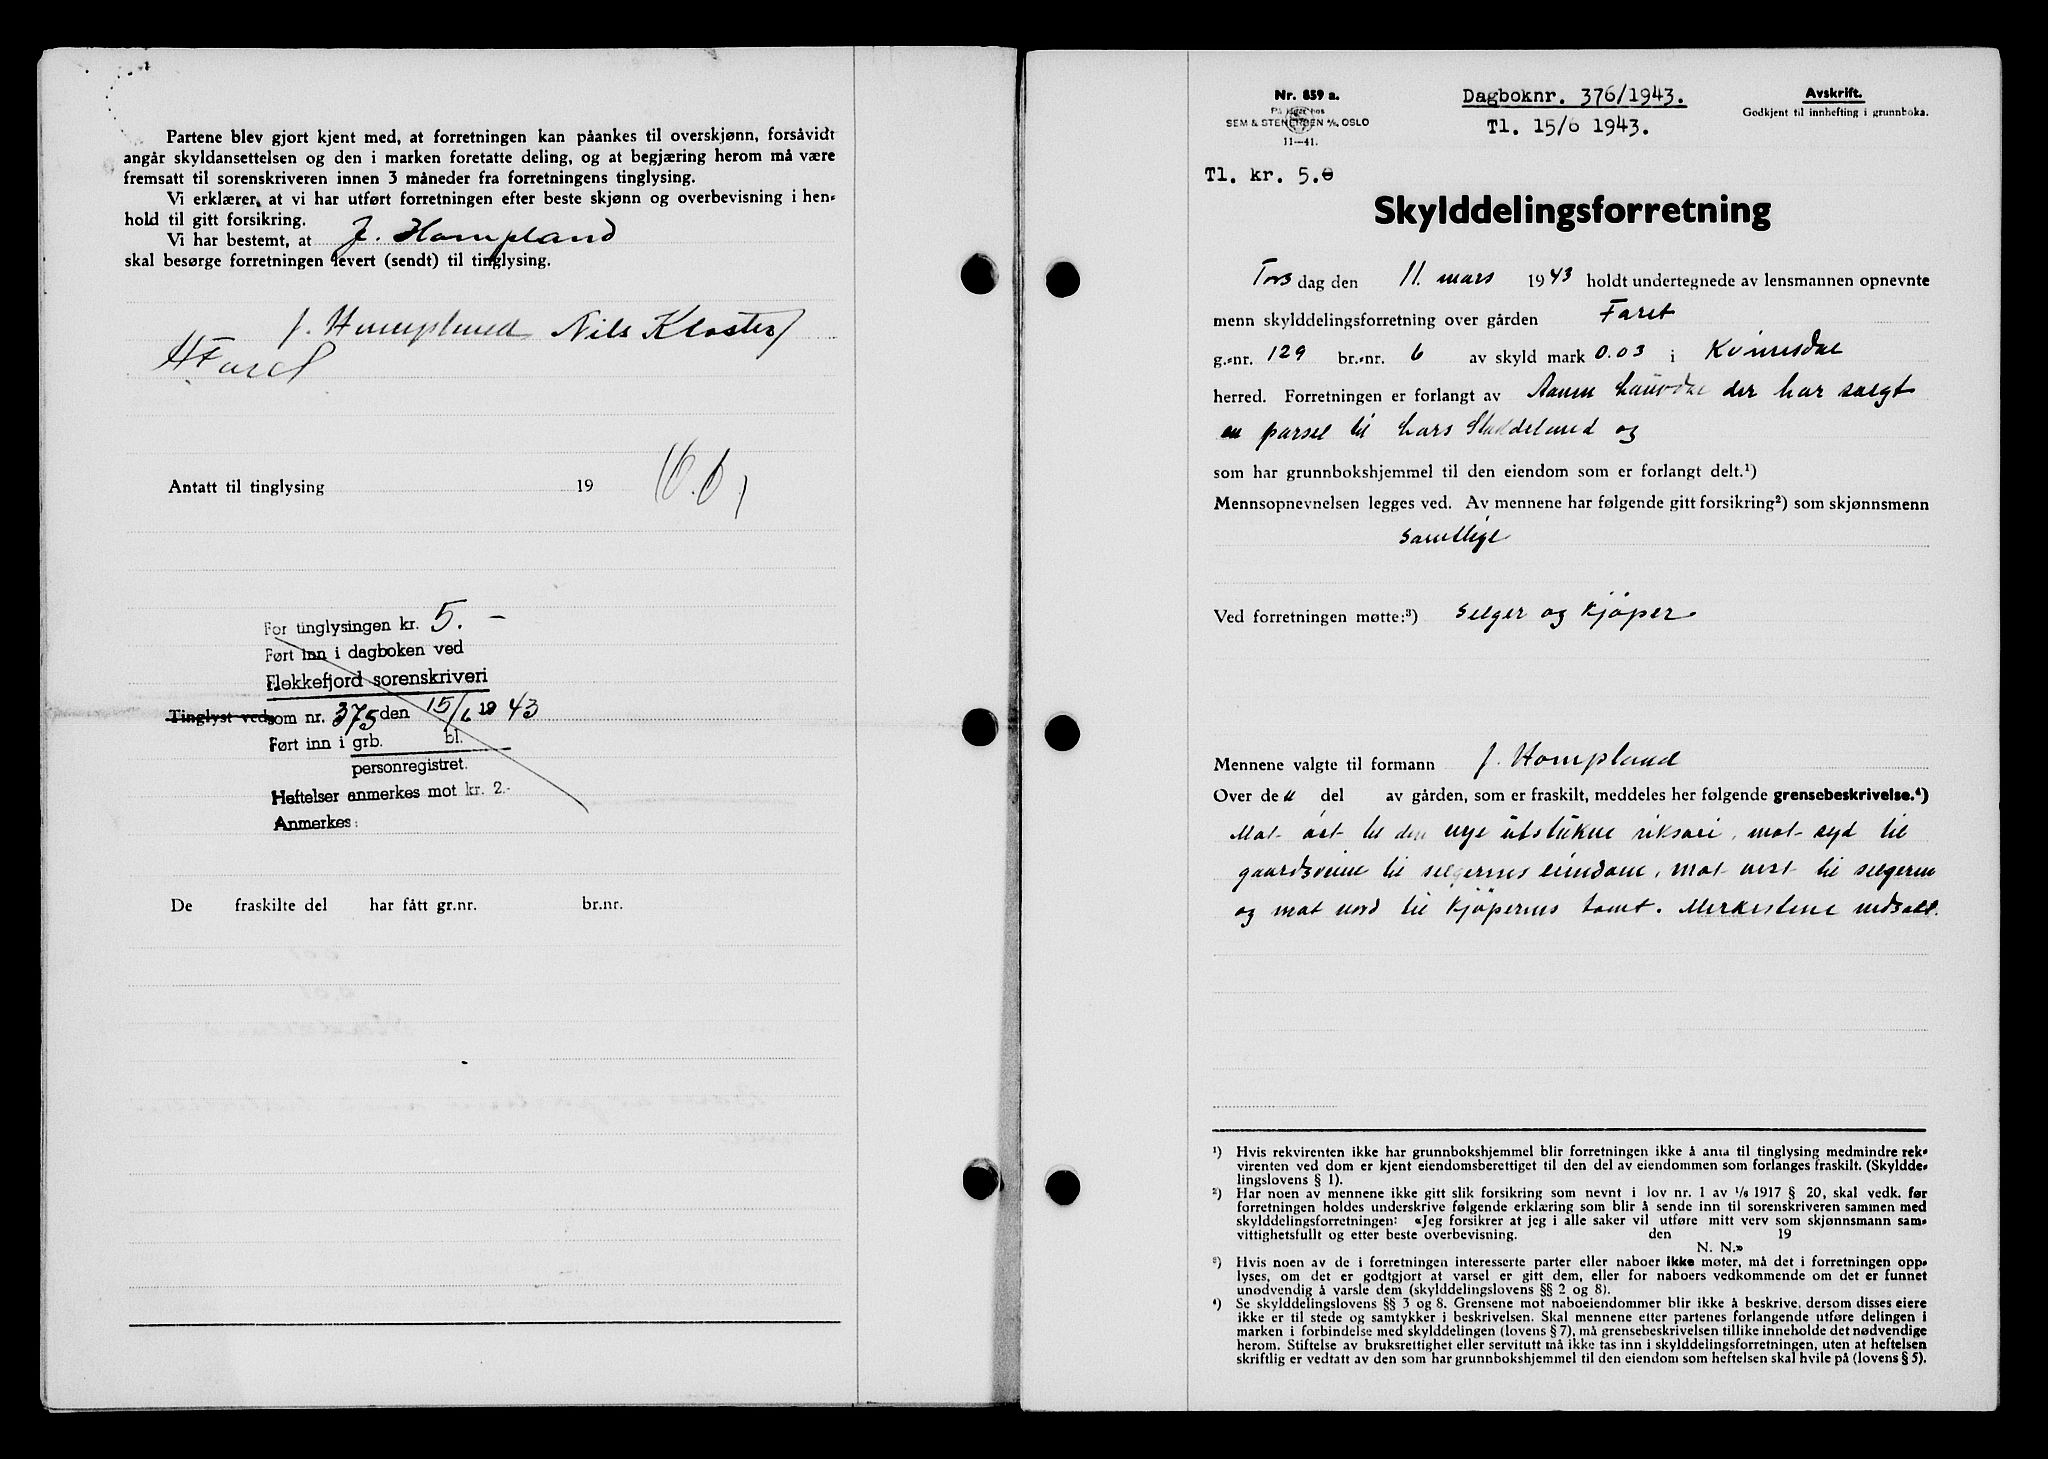 Partene blev gjort kjent med, at forretningen kan påankes til overskjønn, forsåvidt
angår skyldansettelsen og den i marken foretatte deling, og at begjæring herom må være
fremsatt til sorenskriveren innen 3 måneder fra forretningens tinglysing.
Vi erklærer, at vi har utført forretningen efter beste skjønn og overbevisning i hen-
hold til gitt forsikring.
Vi har bestemt, at J. Hompland
skal besørge forretningen levert (sendt) til tinglysing.
J. Hompland Nils Kloster
H Faret
Antatt til tinglysing 19
For tinglysingen kr. 5. -
Ført inn i dagboken ved
Flekkefjord sorenskriveri
Tinglyst ved som nr. 375 den 15/6 19 43
Ført inn i grb. bl.
personregistret.
Heftelser anmerkes mot kr. 2.-
Anmerkes:
De fraskilte del har fått gr.nr. br.nr.
Nr. 859 a.
SEM & STENERSEN A/S, OSLO
11—41.
Dagboknr. 376/1943.
Tl. 15/6 1943.
Avskrift.
Godkjent til innhefting i grunnboka.
Tl. kr. 5.0
Skylddelingsforretning
Tors dag den 11. mars 1943 holdt undertegnede av lensmannen opnevnte
menn skylddelingsforretning over gården Faret
g.-nr. 129 br.-nr. 6 av skyld mark 0.03 i Kvinesdal
herred. Forretningen er forlangt av Aanen Lauvdal der har salgt
en parsel til Lars Staddeland og
som har grunnbokshjemmel til den eiendom som er forlangt delt.¹)
Mennsopnevnelsen legges ved. Av mennene har følgende gitt forsikring²) som skjønnsmenn
samtlige
Ved forretningen møtte:³) selger og kjøper
Mennene valgte til formann J. Hompland
Over den del av gården, som er fraskilt, meddeles her følgende grensebeskrivelse.⁴)
Mot øst til den nye utstukne riksvei, mot syd til
gaardsveien til selgernes eiendom, mot vest til selgeren
og mot nord til kjøpernes tomt. Merkestene nedsatt.
¹) Hvis rekvirenten ikke har grunnbokshjemmel blir forretningen ikke å anta til tinglysing medmindre rek-
virenten ved dom er kjent eiendomsberettiget til den del av eiendommen som forlanges fraskilt. (Skyldde-
lingslovens § 1).
²) Har noen av mennene ikke gitt slik forsikring som nevnt i lov nr. 1 av 1/6 1917 § 20, skal vedk. før
forretningen holdes underskrive følgende erklæring som blir å sende inn til sorenskriveren sammen med
skylddelingsforretningen: «Jeg forsikrer at jeg i alle saker vil utføre mitt verv som skjønnsmann sam-
vittighetsfullt og etter beste overbevisning. den 19
N. N.»
³) Hvis noen av de i forretningen interesserte parter eller naboer ikke møter, må det i forretningen opp-
lyses, om det er godtgjort at varsel er gitt dem, eller for naboers vedkommende om det er funnet
unødvendig å varsle dem (skylddelingslovens §§ 2 og 8).
⁴) Se skylddelingslovens §§ 3 og 8. Grensene mot naboeiendommer blir ikke å beskrive, dersom disses eiere
ikke er til stede og samtykker i beskrivelsen. Skal mennene etter partenes forlangende utføre delingen i
marken i forbindelse med skylddelingen (lovens § 7), må grensebeskrivelsen tillike inneholde det nødvendige
herom. Stiftelse av bruksrettighet eller servitutt må ikke tas inn i skylddelingsforretningen, uten at heftelsen
skriftlig er vedtatt av den som har grunnbokshjemmel til den eiendom som heftelsen skal hvile på (lovens § 5).